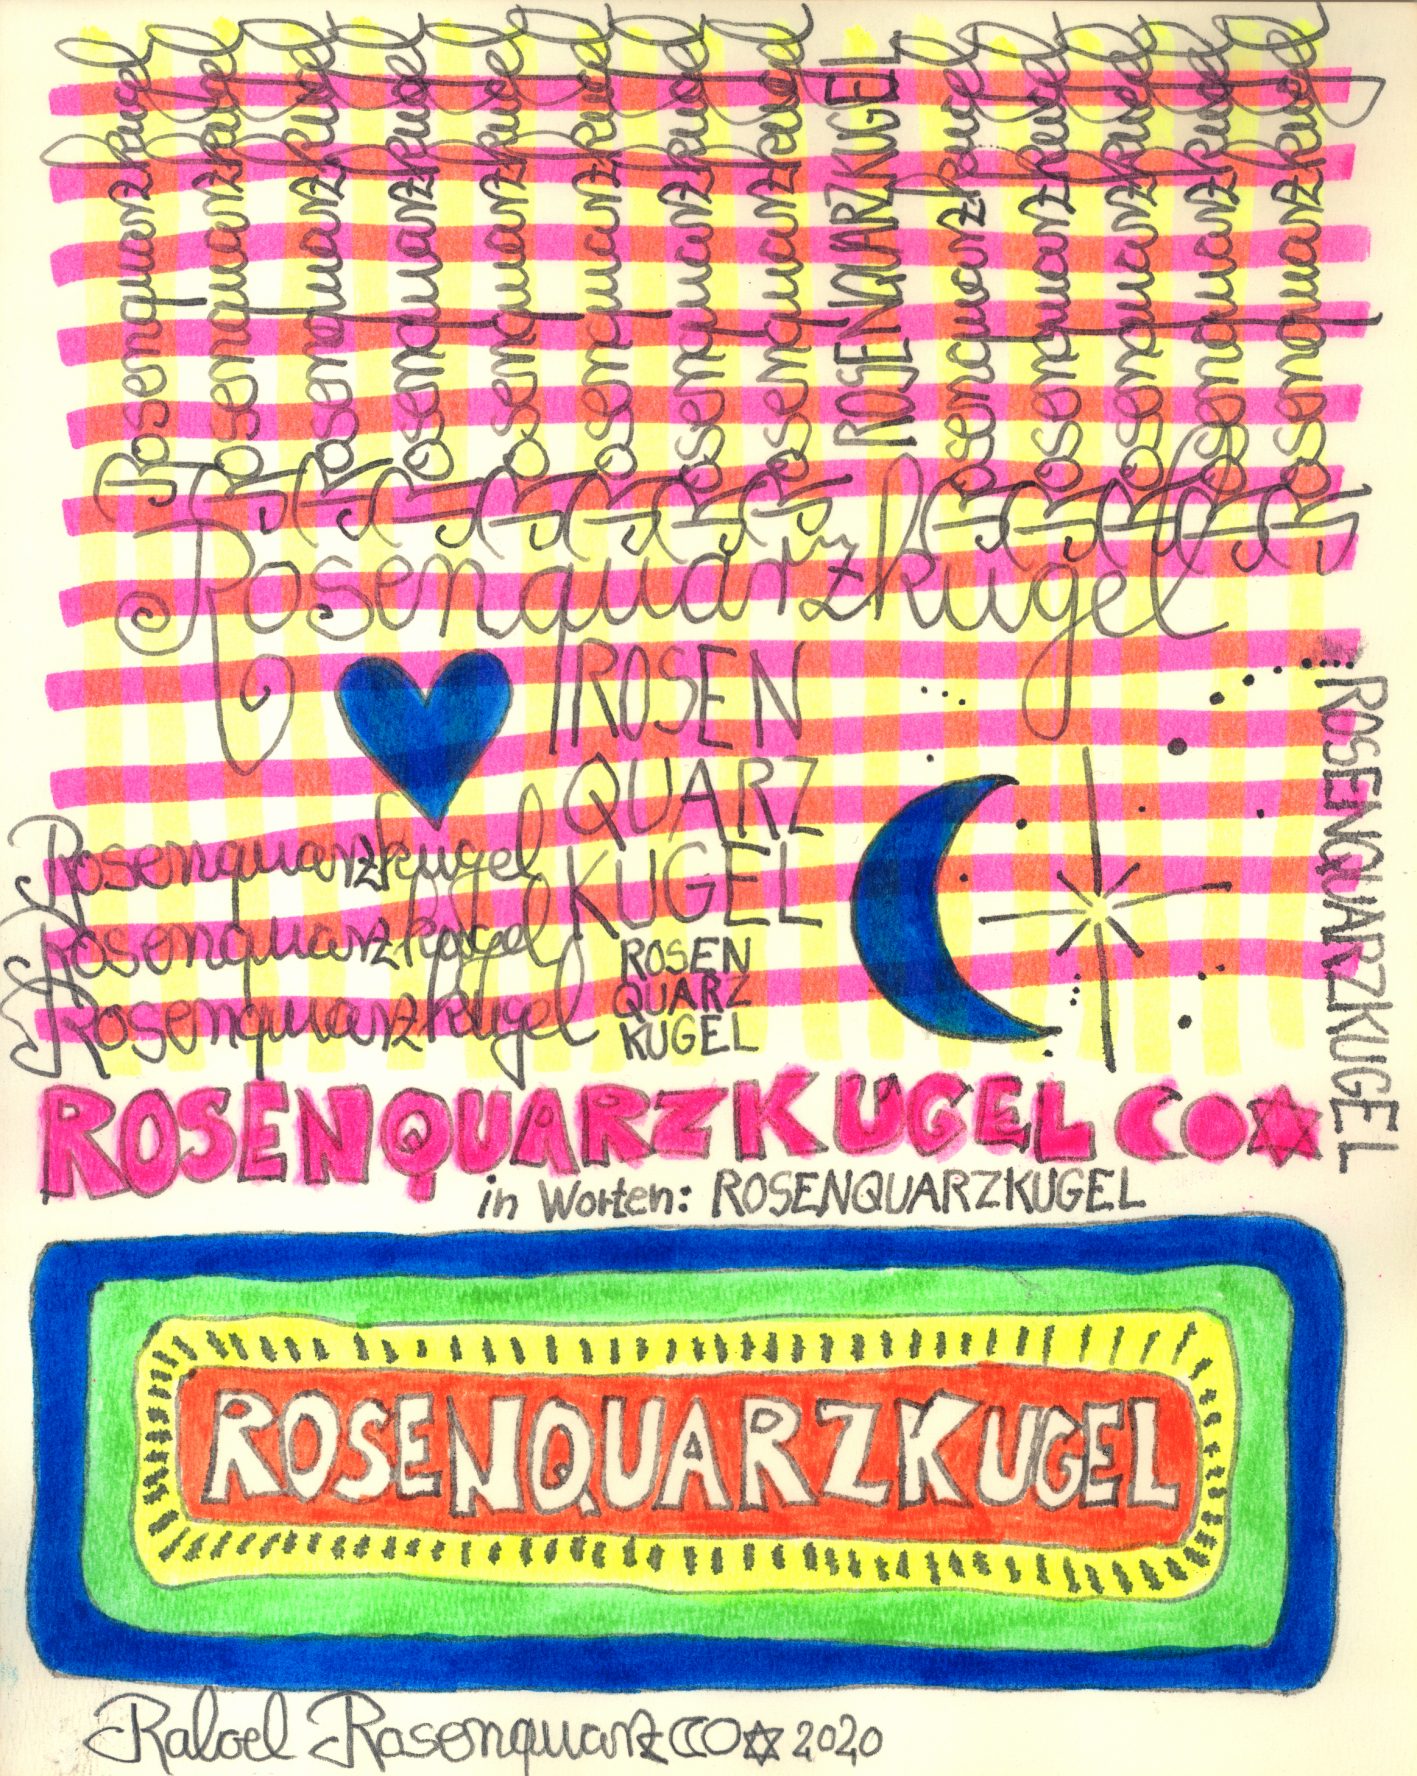 Rosenquarzkugel
Rosenquarzkugel
Rosenquarzkugel
Rosenquarzkugel
Rosenquarzkugel
Rosenquarzkugel
Rosenquarzkugel
Rosenquarzkugel
ROSENQUARZKUGEL
Rosenquarzkugel
Rosenquarzkugel
Rosenquarzkugel
Rosenquarzkugel
Rosenquarzkugel
Rosenquarzkugel
ROSEN
QUARZ
KUGEL
Rosenquarzkugel
Rosenquarzkugel
Rosenquarzkugel
ROSEN
QUARZ
KUGEL
ROSENQUARZKUGEL
ROSENQUARZKUGEL ☾O✡
in Worten: ROSENQUARZKUGEL
ROSENQUARZKUGEL
Rosenquarz ☾O✡ 2020